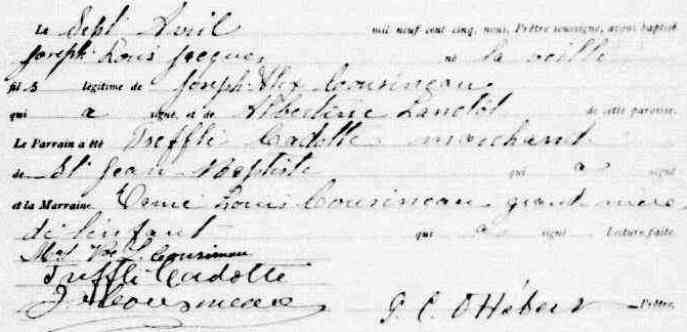 Le Sept Avril mil neuf cent cinq, nous, Prêtre soussigné, avons baptisé
Joseph Louis Jacques, né la veille
fils légitime de Joseph Alex Cousineau
qui a signé, et de Albertine Lanctôt de cette paroisse.
Le Parrain a été Treffle Cadotte marchand
de St Jean Baptiste qui a signé
et la Marraine Dame Louis Cousineau grand mère
de l'enfant qui a signé Lecture faite.
L. Cousineau
Treffle Cadotte
J A Cousineau
G. C. D'Hébert Prêtre.